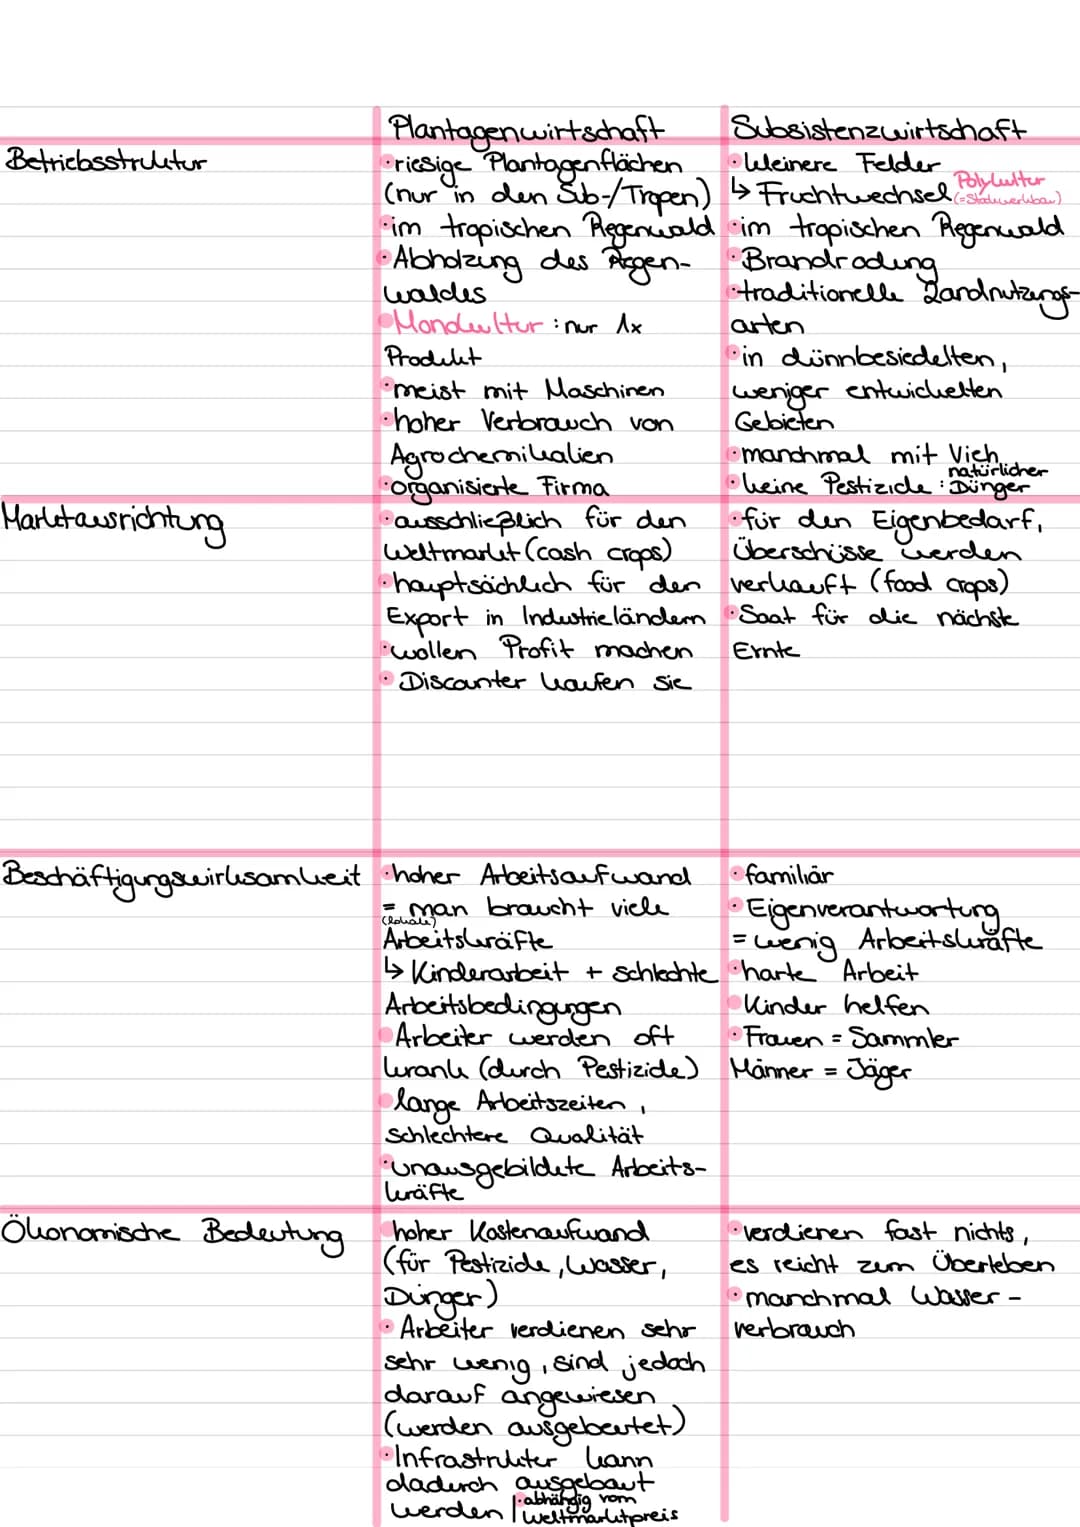 Plantagenwirtschaft
Subsistenzwirtschaft
Betriebsstruktur
• riesige Plantagenflächen
(nur in den Sub-/Tropen)
• im tropischen Regenwald
• Abholzung des Regen-
waldes
• Monokultur : nur 1x
Produkt
• meist mit Maschinen
• hoher Verbrauch von
Agrochemikalien
• organisierte Firma
• kleinere Felder
↳ Fruchtwechsel Polykultur
(=Stockwerkbau)
• im tropischen Regenwald
• Brandrodung
• traditionelle Landnutzungs-
arten
• in dünnbesiedelten,
weniger entwickelten
Gebieten
• manchmal mit Vieh
• keine Pestizide : natürlicher
Dünger
Marktausrichtung
• ausschließlich für den
Weltmarkt (cash crops)
• hauptsächlich für den
Export in Industrieländern
• wollen Profit machen
• Discounter kaufen sie
• für den Eigenbedarf,
Überschüsse werden
verkauft (food crops)
• Saat für die nächste
Ernte
Beschäftigungswirksamkeit
• hoher Arbeitsaufwand
= man braucht viele
(lokale)
Arbeitskräfte
↳ Kinderarbeit + schlechte
Arbeitsbedingungen
• Arbeiter werden oft
krank (durch Pestizide)
• lange Arbeitszeiten,
schlechtere Qualität
• unausgebildete Arbeits-
kräfte
• familiär
• Eigenverantwortung
= wenig Arbeitskräfte
• harte Arbeit
• Kinder helfen
• Frauen = Sammler
Männer = Jäger
Ökonomische Bedeutung
• hoher Kostenaufwand
(für Pestizide, Wasser,
Dünger)
• Arbeiter verdienen sehr
sehr wenig, sind jedoch
darauf angewiesen
(werden ausgebeutet)
• Infrastruktur kann
dadurch ausgebaut
werden | • abhängig vom
Weltmarktpreis
• verdienen fast nichts,
es reicht zum Überleben
• manchmal Wasser-
verbrauch